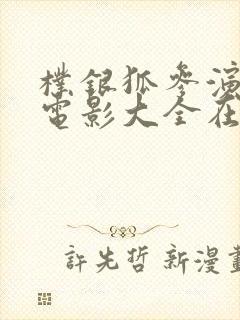 樸銀狐參演
電影大全在
許先哲新漫畫